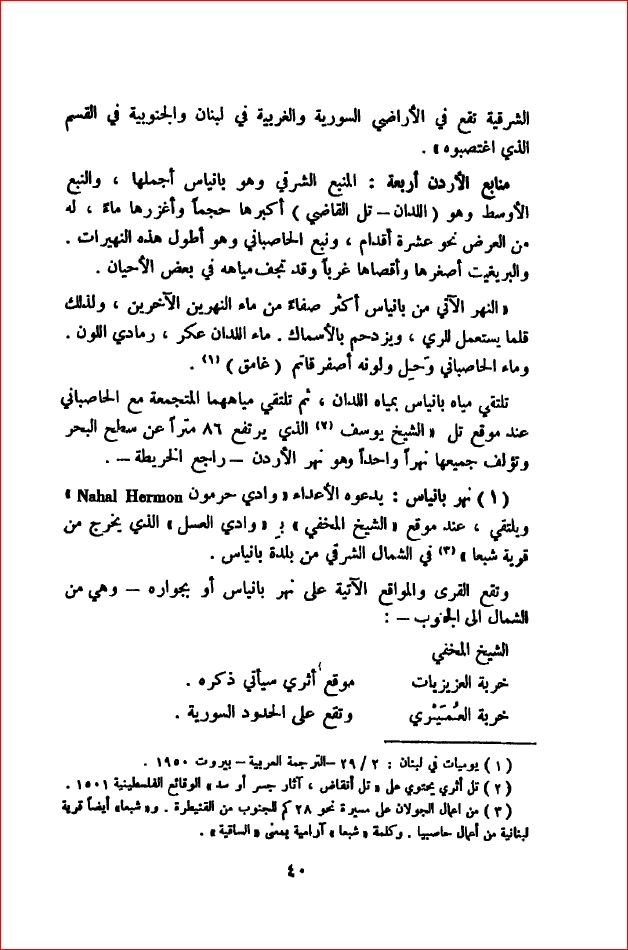 الشرقية تقع في الأراضي السورية والغربية في لبنان والجنوبية في القسم
الذي اغتصبوه » .
منابع الأردن أربعة : المنبع الشرقي وهو بانياس أجملها ، والنبع
الأوسط وهو ( اللدان – تل القاضي ) أكبرها حجماً وأغزرها ماءً ، له
من العرض نحو عشرة أقدام ، ونبع الحاصباني وهو أطول هذه النهيرات .
والبريغيت أصغرها وأقصاها غرباً وقد تجف مياهه في بعض الأحيان .
« النهر الآتي من بانياس أكثر صفاءً من ماء النهرين الآخرين ، ولذلك
قلما يستعمل للري ، ويزدحم بالأسماك . ماء اللدان عكر ، رمادي اللون .
وماء الحاصباني وَحِل ولونه أصفر قاتم ( غامق ) (١) .
تلتقي مياه بانياس بمياه اللدان ، ثم تلتقي مياههما المتجمعة مع الحاصباني
عند موقع تل « الشيخ يوسف (٢) الذي يرتفع ٨٦ متراً عن سطح البحر
وتؤلف جميعها نهراً واحداً وهو نهر الأردن – راجع الخريطة – .
( ١ ) نهر بانياس : يدعوه الأعداء « وادي حرمون Nahal Hermon »
ويلتقي ، عند موقع « الشيخ المخفي » بـِ « وادي العسل » الذي يخرج من
قرية شبعا » (٣) في الشمال الشرقي من بلدة بانياس .
وتقع القرى والمواقع الآتية على نهر بانياس أو بجواره – وهي من
الشمال الى الجنوب – :
الشيخ المخفي
خربة العزيزيات موقع أثري سيأتي ذكره .
خربة السُّمَيْري وتقع على الحدود السورية .
( ١ ) يوميات في لبنان : ٢ / ٢٩ –الترجمة العربية – بيروت ١٩٥٠ .
( ٢ ) تل أثري يحتوي على « تل أنقاض ، آثار جسر أو سد » الوقائع الفلسطينية ١٥٠١ .
( ٣ ) من اعمال الجولان على مسيرة نحو ٢٨ كم للجنوب من القنيطرة . و« شبعا» أيضاً قرية
لبنانية من أعمال حاصبيا . وكلمة « شبعا » آرامية بمعنى « الساقية » .
٤٠